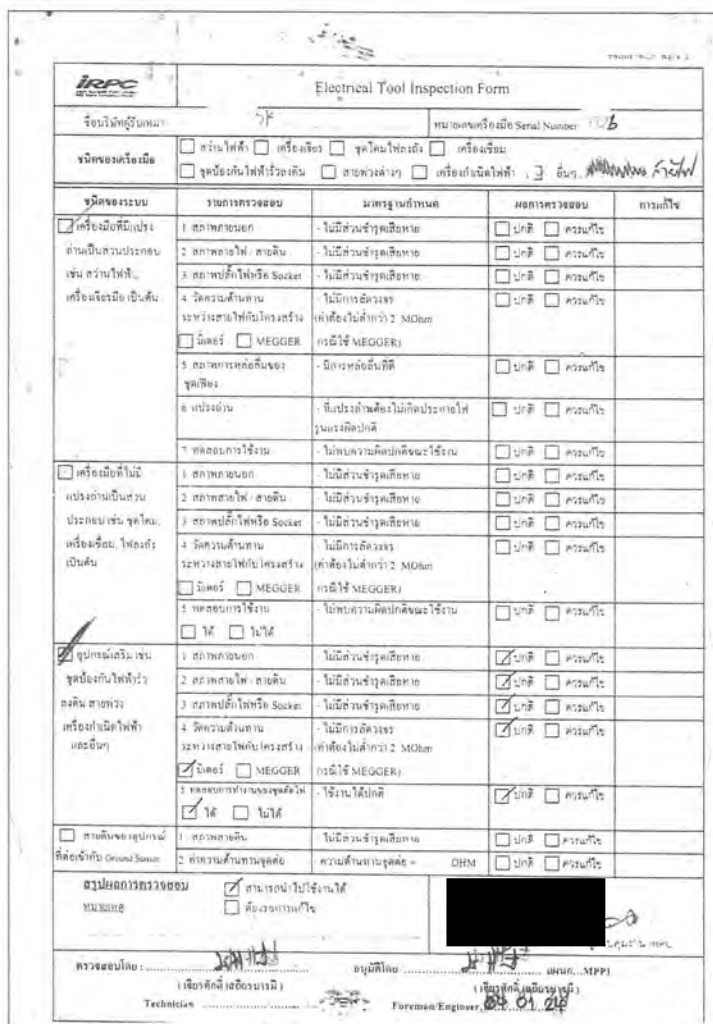 IRPC
Electrical Tool Inspection Form
ชื่อบริษัทผู้รับเหมา SK
หมายเลขเครื่องมือ/Serial Number
ชนิดของเครื่องมือ
สว่านไฟฟ้า เครื่องเจียร ชุดโคมไฟลงถัง เครื่องเชื่อม
ชุดป้องกันไฟฟ้ารั่วลงดิน สายพ่วงต่างๆ เครื่องกำเนิดไฟฟ้า อื่นๆ สายไฟ
ชนิดของระบบ รายการตรวจสอบ มาตรฐานกำหนด ผลการตรวจสอบ การแก้ไข
เครื่องมือที่มีแปรง
ถ่านเป็นส่วนประกอบ
เช่น สว่านไฟฟ้า,
เครื่องเจียรมือ เป็นต้น
1 สภาพภายนอก - ไม่มีส่วนชำรุดเสียหาย ปกติ ควรแก้ไข
2 สภาพสายไฟ / สายดิน - ไม่มีส่วนชำรุดเสียหาย ปกติ ควรแก้ไข
3 สภาพปลั๊กไฟหรือ Socket - ไม่มีส่วนชำรุดเสียหาย ปกติ ควรแก้ไข
4 วัดความต้านทาน - ไม่มีการลัดวงจร ปกติ ควรแก้ไข
ระหว่างสายไฟกับโครงสร้าง (ค่าต้องไม่ต่ำกว่า 2 MOhm
มิเตอร์ MEGGER กรณีใช้ MEGGER)
5 สภาพการหล่อลื่นของ - มีการหล่อลื่นที่ดี ปกติ ควรแก้ไข
ชุดเฟือง
6 แปรงถ่าน - ที่แปรงถ่านต้องไม่เกิดประกายไฟ ปกติ ควรแก้ไข
รุนแรงผิดปกติ
7 ทดสอบการใช้งาน - ไม่พบความผิดปกติขณะใช้งาน ปกติ ควรแก้ไข
เครื่องมือที่ไม่มี
แปรงถ่านเป็นส่วน
ประกอบ เช่น ชุดโคม,
เครื่องเชื่อม, ไฟลงถัง
เป็นต้น
1 สภาพภายนอก - ไม่มีส่วนชำรุดเสียหาย ปกติ ควรแก้ไข
2 สภาพสายไฟ / สายดิน - ไม่มีส่วนชำรุดเสียหาย ปกติ ควรแก้ไข
3 สภาพปลั๊กไฟหรือ Socket - ไม่มีส่วนชำรุดเสียหาย ปกติ ควรแก้ไข
4 วัดความต้านทาน - ไม่มีการลัดวงจร ปกติ ควรแก้ไข
ระหว่างสายไฟกับโครงสร้าง (ค่าต้องไม่ต่ำกว่า 2 MOhm
มิเตอร์ MEGGER กรณีใช้ MEGGER)
5 ทดสอบการใช้งาน - ไม่พบความผิดปกติขณะใช้งาน ปกติ ควรแก้ไข
ได้ ไม่ได้
อุปกรณ์เสริม เช่น
ชุดป้องกันไฟฟ้ารั่ว
ลงดิน สายพ่วง
เครื่องกำเนิดไฟฟ้า
และอื่นๆ
1 สภาพภายนอก - ไม่มีส่วนชำรุดเสียหาย ปกติ ควรแก้ไข
2 สภาพสายไฟ / สายดิน - ไม่มีส่วนชำรุดเสียหาย ปกติ ควรแก้ไข
3 สภาพปลั๊กไฟหรือ Socket - ไม่มีส่วนชำรุดเสียหาย ปกติ ควรแก้ไข
4 วัดความต้านทาน - ไม่มีการลัดวงจร ปกติ ควรแก้ไข
ระหว่างสายไฟกับโครงสร้าง (ค่าต้องไม่ต่ำกว่า 2 MOhm
มิเตอร์ MEGGER กรณีใช้ MEGGER)
5 ทดสอบการทำงานของชุดตัดไฟ - ใช้งานได้ปกติ ปกติ ควรแก้ไข
ได้ ไม่ได้
สายดินของอุปกรณ์
ที่ต่อเข้ากับ Ground System
1 สภาพสายดิน - ไม่มีส่วนชำรุดเสียหาย ปกติ ควรแก้ไข
2 ค่าความต้านทานจุดต่อ - ความต้านทานจุดต่อ = OHM ปกติ ควรแก้ไข
สรุปผลการตรวจสอบ สามารถนำไปใช้งานได้
หมายเหตุ ต้องรอการแก้ไข
ตรวจสอบโดย : อนุมัติโดย แผนก...MPP1
(เธียรศักดิ์ เสถียรบารมี) (เธียรศักดิ์ เสถียรบารมี)
Technician Foreman/Engineer 04 01 24